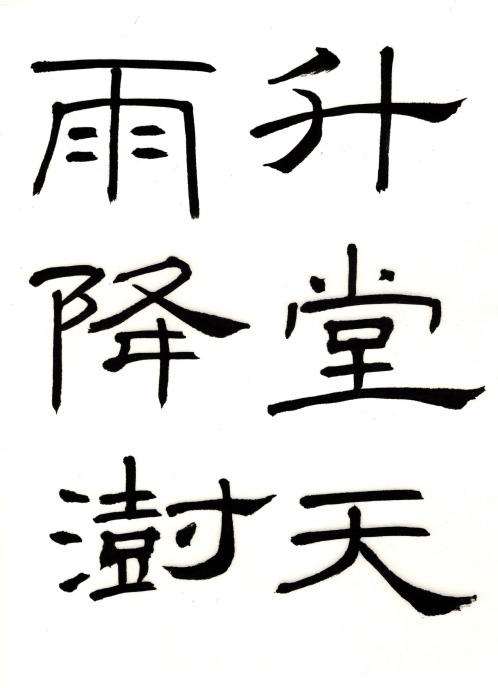 升堂天
雨降澍